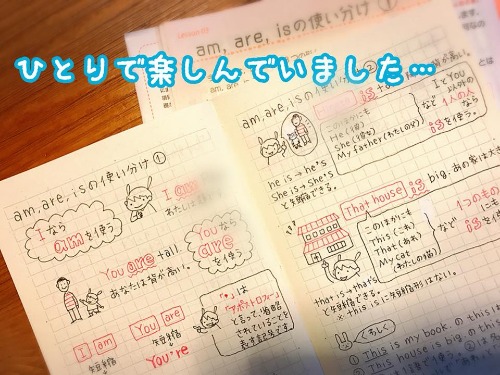 ひとりで楽しんでいました…
am, are, isの使い分け①
am,are,isの使い分け①
Iなら
amを使う
I am
Youなら
are
を使う
You are tall.
あなたは背が高い。
I am
短縮
You are
短縮
You're
「'」は
「アポストロフィー」
と言って、省略
されていることを
表す記号です
am,are,isの使い分け②
is
このほかにも
He (彼)
She (彼女)
My father (わたしの父)
など
IとYou
以外の
1人の人
なら
isを使う。
he is → he's
She is → She's
と短縮できる。
That house is big. あの家は大き
このほかにも
This (これ)
That (あれ)
My cat
(わたしの猫)
など
1つのもの
isを
that is → that's
と短縮できる。
※this isに短縮形はない。
くわしく
① This is my book. の this は
② This house is big. の this